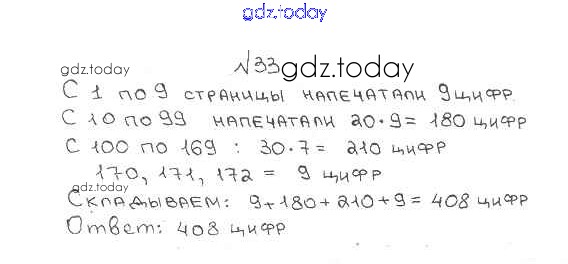 gdz.today
gdz.today
№33 gdz.today
С 1 по 9 страницы напечатали 9 цифр.
С 10 по 99 напечатали 20·9= 180 цифр
С 100 по 169 : 30·7= 210 цифр
170, 171, 172 = 9 цифр
gdz.today
Складываем: 9+180+210+9=408 цифр
Ответ: 408 цифр